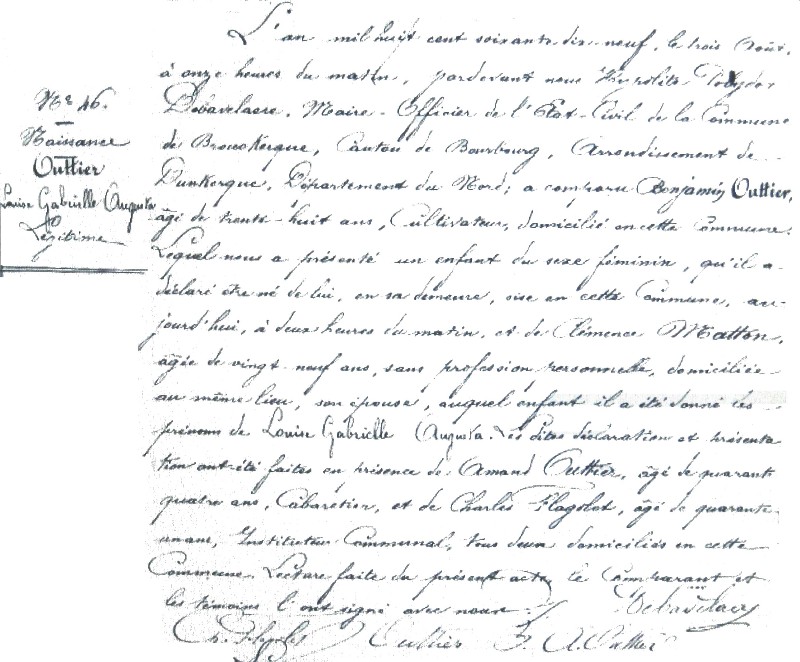 Nº 46.
Naissance
Outtier
Louise Gabrielle Augusta
Légitime
L'an mil huit cent soixante dix-neuf, le trois Août,
à onze heures du matin, pardevant nous Hypolite Polydor
Debavelaere, Maire - Officier de l'Etat-Civil de la Commune
de Brouckerque, Canton de Bourbourg, Arrondissement de
Dunkerque, Département du Nord; a comparu Benjamin Outtier,
âgé de trente-huit ans, Cultivateur, domicilié en cette Commune.
Lequel nous a présenté un enfant du sexe féminin, qu'il a
déclaré être né de lui, en sa demeure, sise en cette Commune, au-
jourd'hui, à deux heures du matin, et de Clémence Matton,
âgée de vingt-neuf ans, sans profession personnelle, domiciliée
au même lieu, son épouse, auquel enfant il a été donné les
prénoms de Louise Gabrielle Augusta. Les dites déclaration et présenta
tion ont été faites en présence de Amand Outtier, âgé de quarante
quatre ans, Cabaretier, et de Charles Flagolet, âgé de quarante
un ans, Instituteur Communal, tous deux domiciliés en cette
Commune. Lecture faite du présent acte, le Comparant et
les témoins l'ont signé avec nous. Debavelaere
Ch. Outtier B. A. Outtier